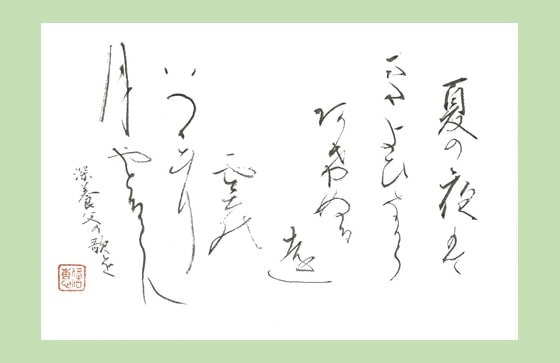 夏の夜は
まだよひなから
阿けぬる
遠
雲の
いつこに
月やとるらむ
深養父の歌を